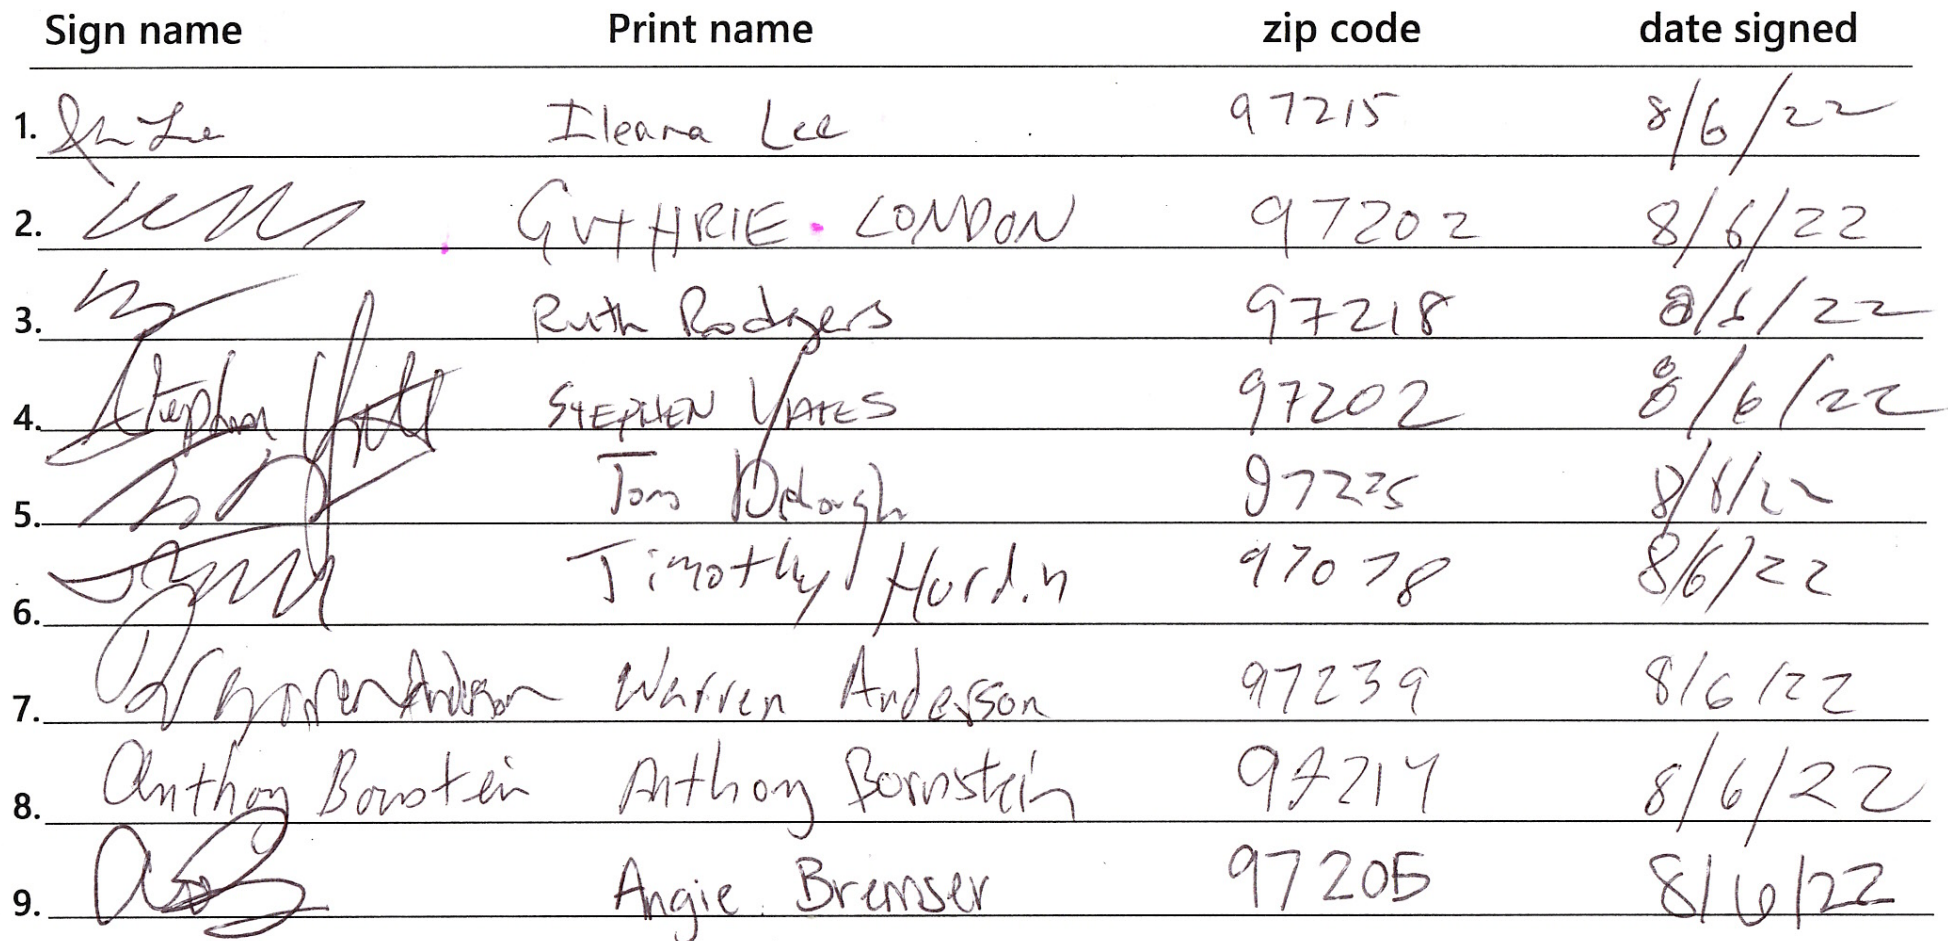 Sign name Print name zip code date signed
1. Ileana Lee 97215 8/6/22
2. GUTHRIE LONDON 97202 8/6/22
3. Ruth Rodgers 97218 8/6/22
4. Stephen Yates STEPHEN YATES 97202 8/6/22
5. Tom 97225
6. Timothy Hardin 97078 8/6/22
7. Warren Anderson Warren Anderson 97239 8/6/22
8. Anthony Bornstein Anthony Bornstein 97214 8/6/22
9. Angie Bremser 97205 8/6/22